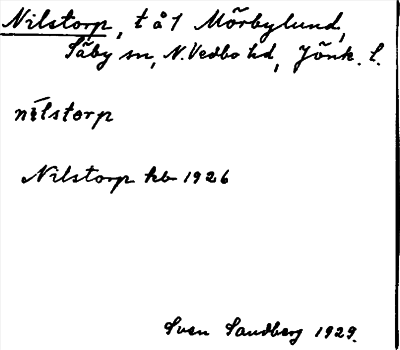 Nilstorp, t å 1 Mörbylund,
Säby sn, N. Vedbo hd, Jönk. l.
nílstorp
Nilstorp kb 1926
Sven Sandberg 1929.